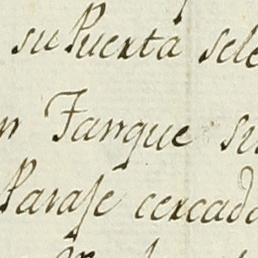 su Puerta sele
n Tanque su
Paraje cercado